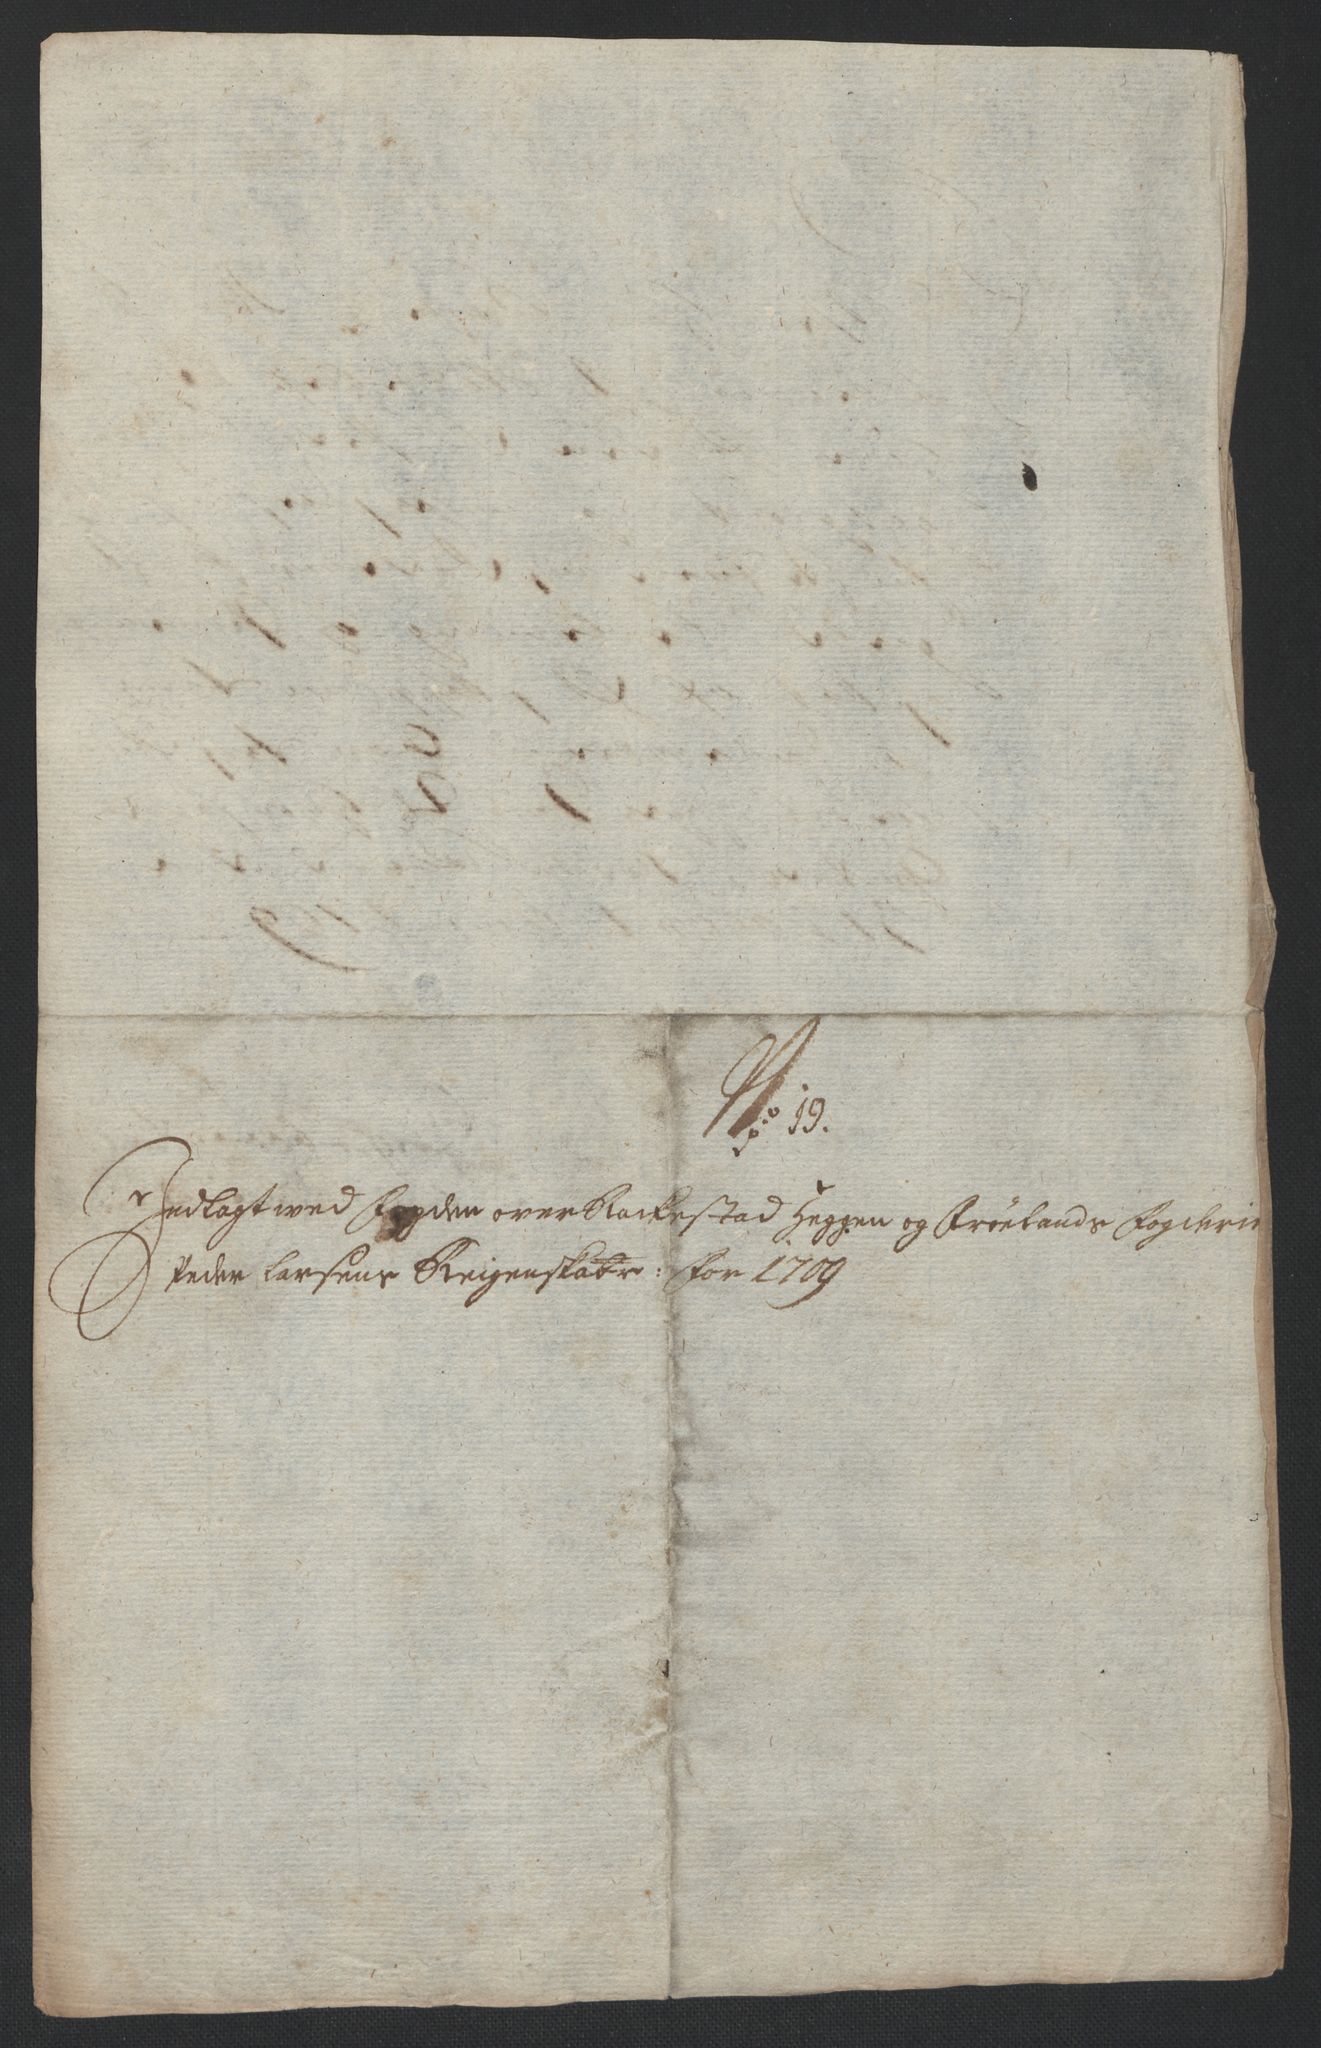 No: 19.
Indlagt wed Fogden over Rackestad Heggen og Frölands Fogderie
Peder Larsens Reigenskaber: for 1709